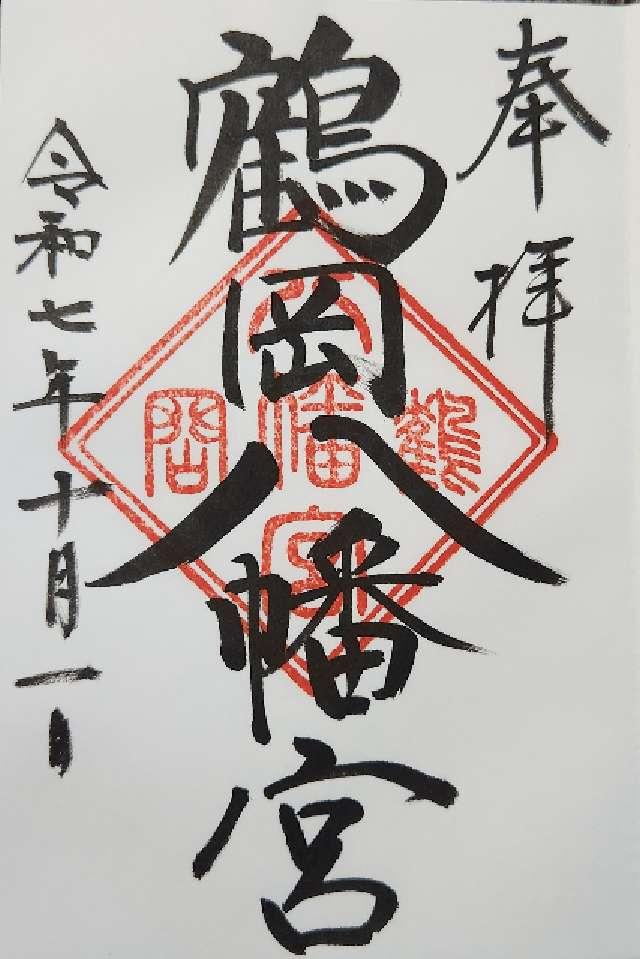 奉拝
鶴岡八幡宮
鶴岡
八幡宮
令和七年十月一日